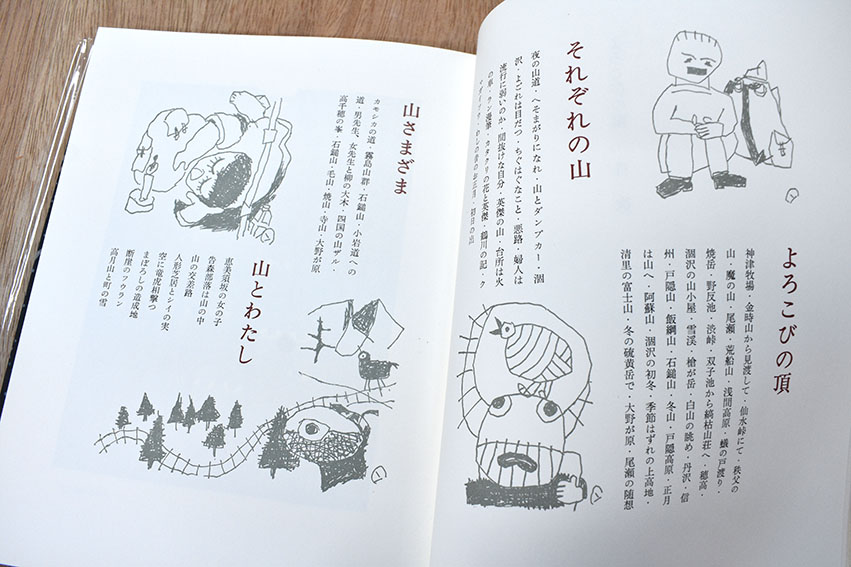 よろこびの頂
神津牧場・金時山から見渡して・仙水峠にて・秩父の
山・魔の山・尾瀬・荒船山・浅間高原・蟻の戸渡り・
焼岳・野反池・渋峠・双子池から縞枯山荘へ・穂高・
涸沢の山小屋・雪渓・槍が岳・白山の眺め・丹沢・信
州・戸隠山・飯綱山・石鎚山・冬山・戸隠高原・正月
は山へ・阿蘇山・涸沢の初冬・季節はずれの上高地・
清里の富士山・冬の硫黄岳で・大野が原・尾瀬の随想
それぞれの山
夜の山道・へそまがりになれ・山とダンプカー・涸
沢・よごれは目だつ・ちぐはぐなこと・悪路・婦人は
流行に弱いのか・間抜けな自分・英傑の山・台所は火
の車・ラン漫筆・カタクリの花と英傑・鶴川の記・ク
山さまざま
カモシカの道・霧島山群・石鎚山・小岩道への
道・男先生、女先生と柳の大木・四国の山ザル・
高千穂の峯・石鎚山・毛山・焼山・寺山・大野が原
山とわたし
恵美須坂の女の子
告森部落は山の中
山の交差路
人形芝居とシイの実
空に竜虎相撃つ
まぼろしの造成地
断崖のフウラン
高月山と町の雪